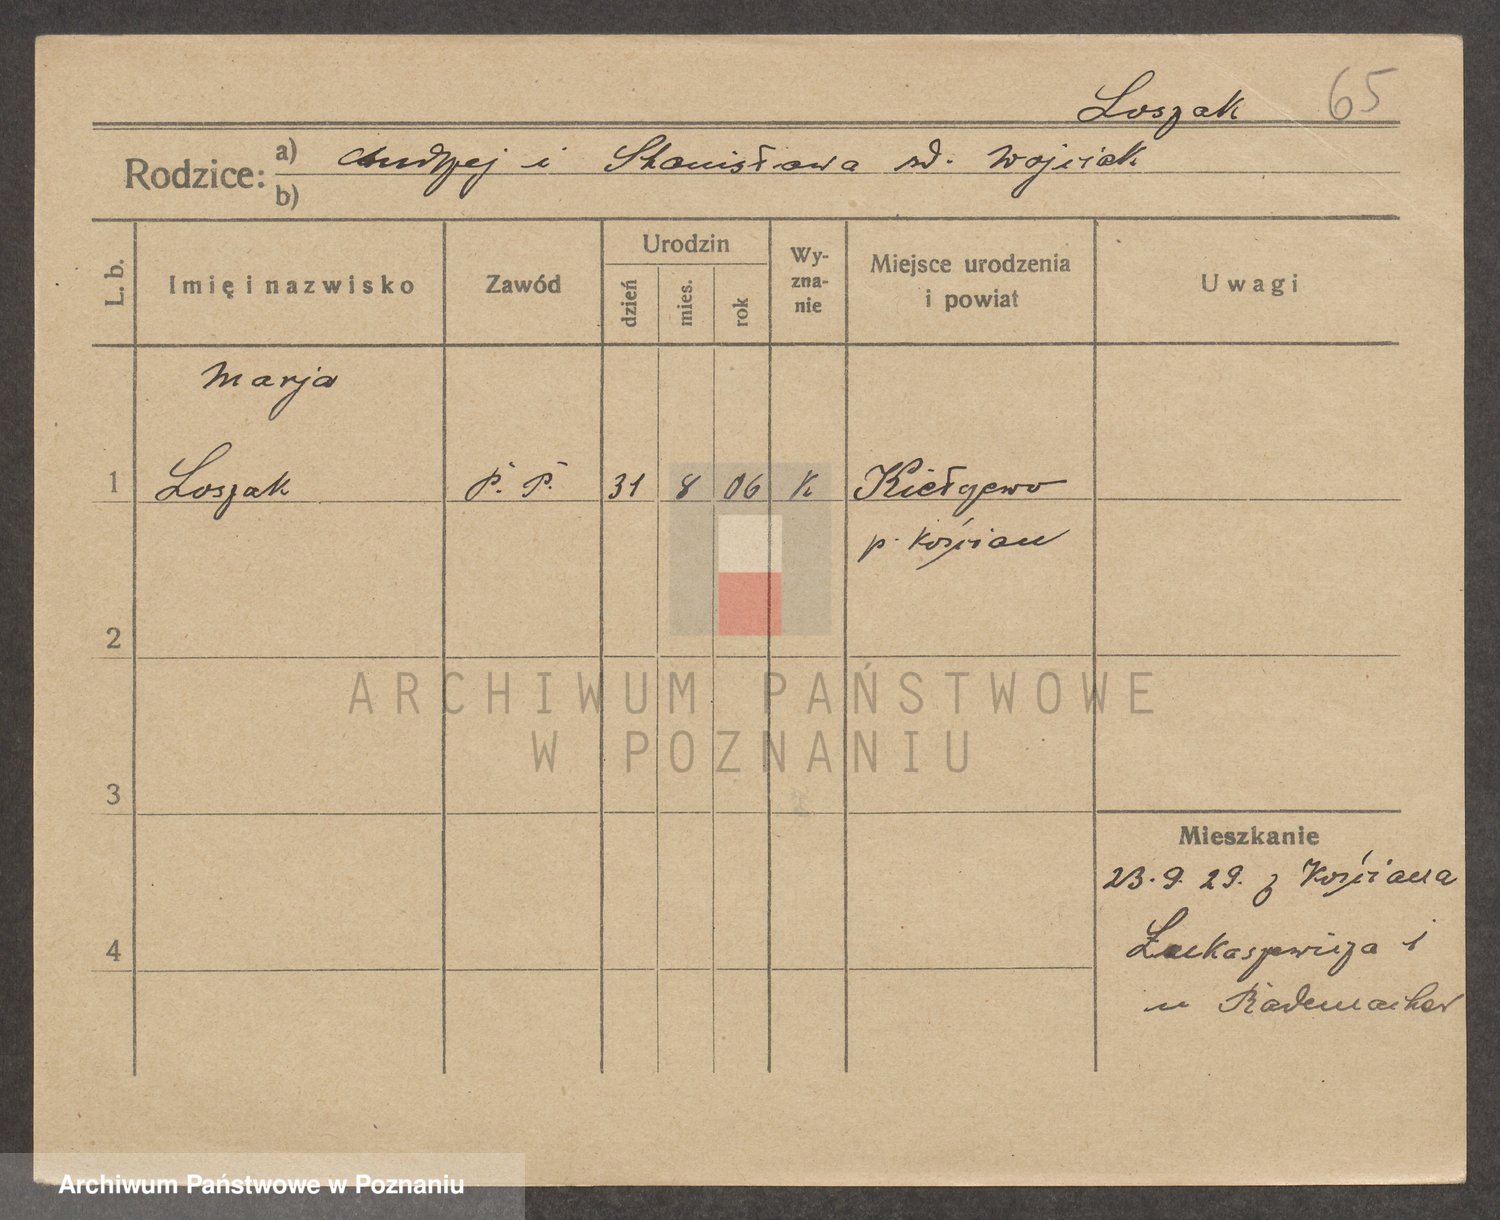 Loszak 65
Rodzice: a) Andrzej i Stanisława zd. Wojciak
b)
L. b. Imię i nazwisko Zawód Urodzin dzień mies. rok Wyznanie Miejsce urodzenia i powiat Uwagi
Marja
1 Loszak P. P. 31 8 06 K Kiełczewo
p. Kościan
2
ARCHIWUM PAŃSTWOWE
W POZNANIU
3
Mieszkanie
23. 9. 29. z Kościana
4 Łukaszewicza 1
u Rademacher
Archiwum Państwowe w Poznaniu